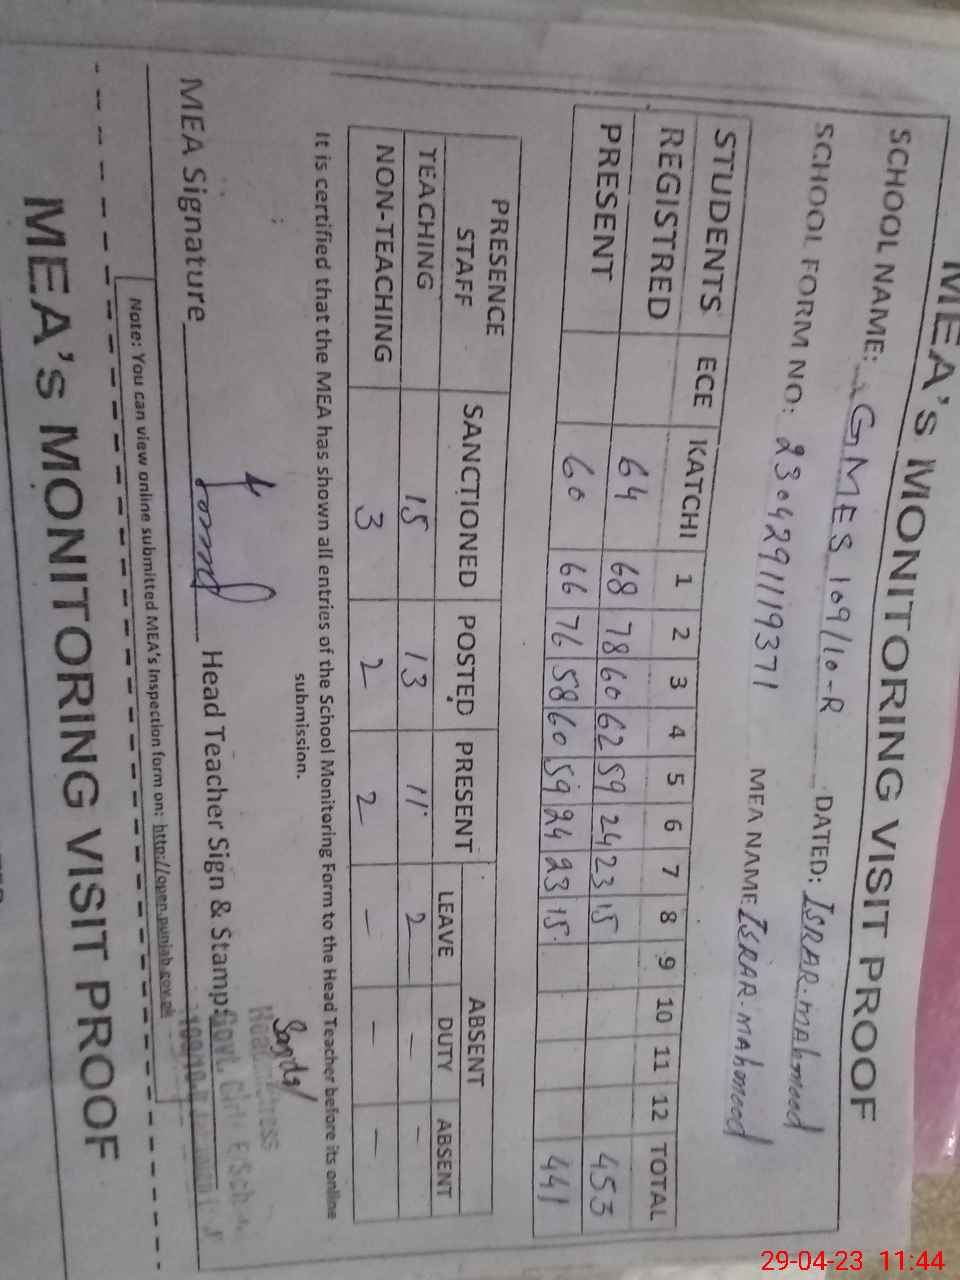 MEA's MONITORING VISIT PROOF
SCHOOL NAME: GMES 109/10-R DATED: ISRAR.mahmood
SCHOOL FORM NO: 2304291119371 MEA NAME ISRAR.mahmood
STUDENTS ECE KATCHI 1 2 3 4 5 6 7 8 9 10 11 12 TOTAL
REGISTRED 64 68 78 60 62 59 24 23 15 453
PRESENT 60 66 76 58 60 59 24 23 15 441
PRESENCE STAFF SANCTIONED POSTED PRESENT ABSENT
LEAVE DUTY ABSENT
TEACHING 15 13 11 2 — —
NON-TEACHING 3 2 2 — — —
It is certified that the MEA has shown all entries of the School Monitoring Form to the Head Teacher before its online
submission.
MEA Signature Head Teacher Sign & Stamp:
Govt. Girls E/Sch
Note: You can view online submitted MEA's Inspection form on: http://open.punjab.gov.pk
MEA's MONITORING VISIT PROOF
29-04-23 11:44